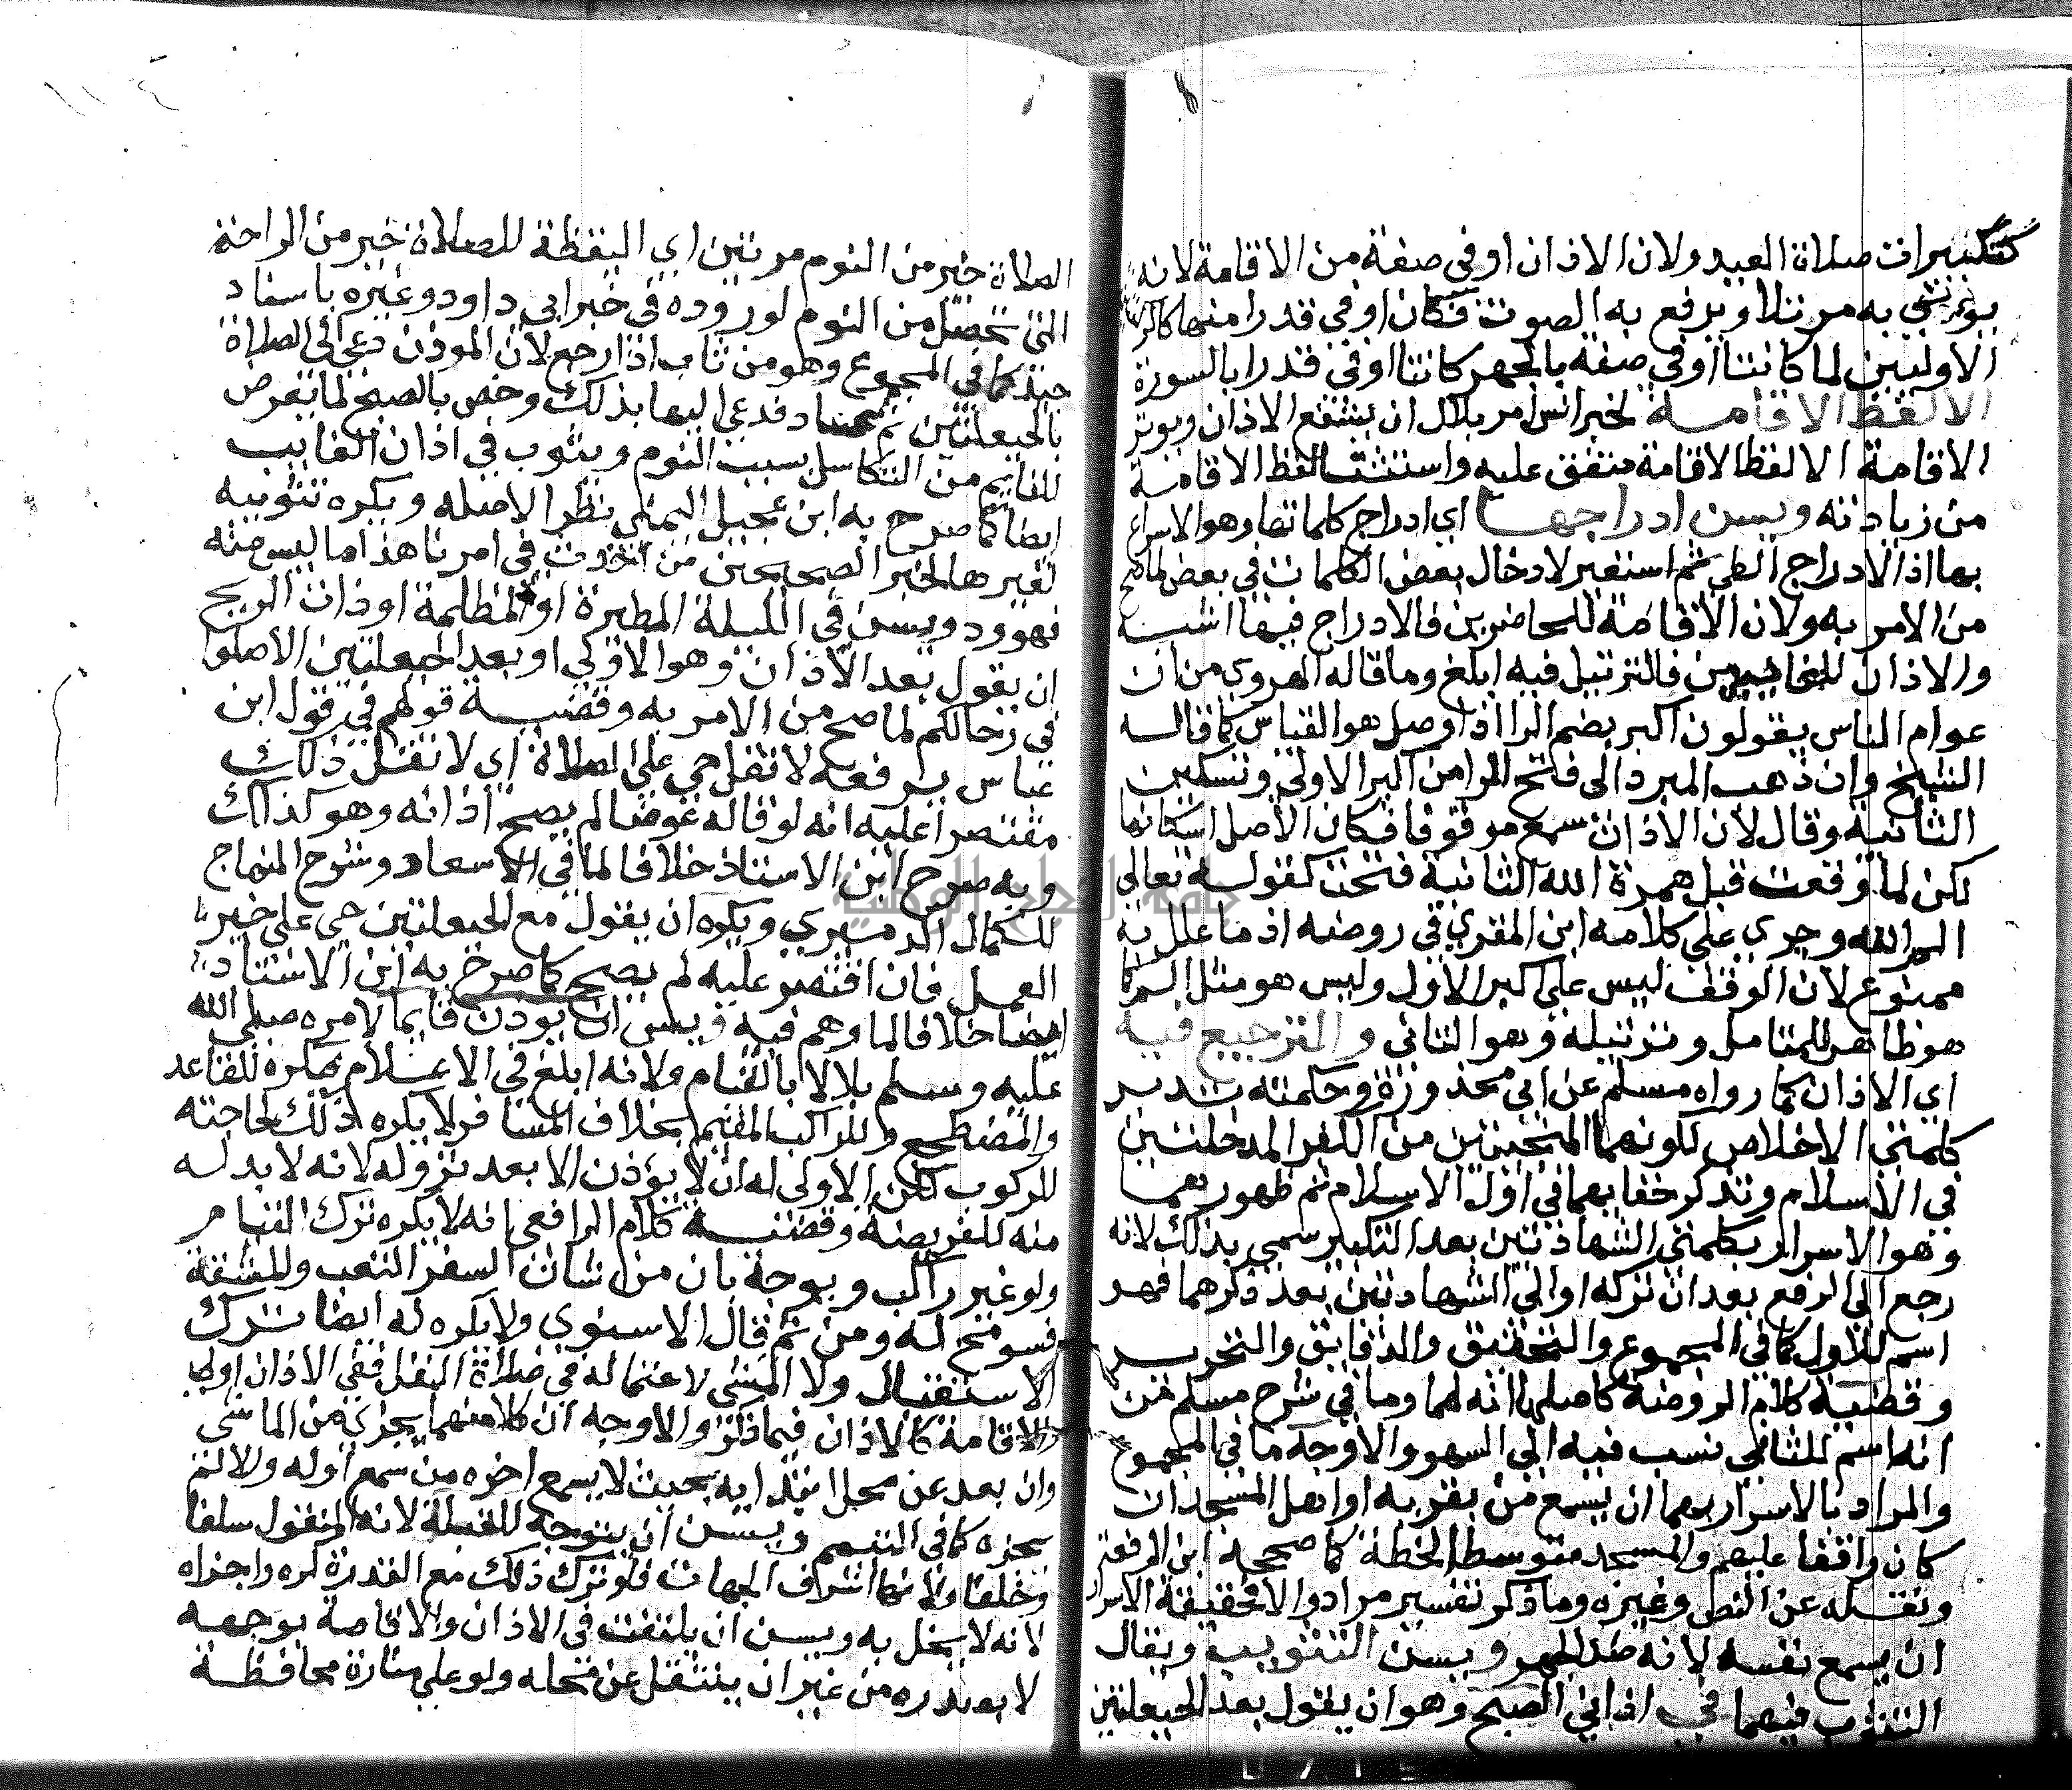 كتكبيرات صلاة العيد ولان الاذان اوفي صفة من الاقامة لانه
يوتي به مرتلا ويرفع به الصوت فكان اوفي قدرا منها كالركعتين
الاوليين لما كانتا اوفي صفة بالجهر كانتا اوفي قدرا بالسورة
الا لفظ الاقامة لخبر انس امر بلال ان يشفع الاذان ويوتر
الاقامة الا لفظ الاقامة متفق عليه واستثنا لفظ الاقامة
من زيادته ويسن ادراجها اي ادراج كلماتها وهو الاسراع
بها اذ الادراج الطي ثم استعير لادخال بعض الكلمات في بعض لما صح
من الامر به ولان الاقامة للحاضرين فالادراج فيها اشبه
والاذان للغائبين فالترتيل فيه ابلغ وما قاله الهروي من ان
عوام الناس يقولون اكبر بضم الرا اذا وصل هو القياس كما قاله
الشيخ وان ذهب المبرد الى فتح الرا من اكبر الاولي وتسكين
الثانية وقال لان الاذان سمع موقوفا فكان الاصل اسكانها
لكن لما وقعت قبل همزة الله الثانية فتحت كقوله تعالى
الم الله وجري على كلامه ابن المقري في روضه اذ ما علل به
ممنوع لان الوقف ليس على اكبر الاول وليس هو مثل الم كما
هو ظاهر للمتامل وترتيله وهو الثاني والترجيع فيه
اي الاذان كما رواه مسلم عن ابي محذورة وحكمته تدبر
كلمتي الاخلاص لكونهما المنجيتين من الكفر المدخلتين
في الاسلام وتذكر خفايهما في اول الاسلام ثم ظهورهما
وهو الاسرار بكلمتي الشهادتين بعد التكبير سمي بذلك لانه
رجع الى الرفع بعد ان تركه او الى الشهادتين بعد ذكرهما فهو
اسم للاول كما في المجموع والتحقيق والدقايق والتحرير
وقضية كلام الروضة كاصلها انه لهما وما في شرح مسلم من
انه اسم للثاني نسب فيه الى السهو والاوجه ما في المجموع
والمراد بالاسرار بهما ان يسمع من بقربه او اهل المسجد ان
كان واقفا عليهم والمسجد متوسط الخطة كما صححه ابن الرفعة
ونقله عن النص وغيره وما ذكر تفسير مراد والا فحقيقة الاسرار
ان يسمع نفسه لانه ضد الجهر ويسن التثويب ويقال
التثوب فيهما في اذاني الصبح وهو ان يقول بعد الحيعلتين
الصلاة خير من النوم مرتين اي اليقظة للصلاة خير من الراحة
التي تحصل من النوم لوروده في خبر ابي داود وغيره باسناد
جيد كما في المجموع وهو من ثاب اذا رجع لان الموذن دعى الى الصلاة
بالحيعلتين ثم عاد فدعي اليها بذلك وخص بالصبح لما يعرض
للنايم من التكاسل بسبب النوم ويثوب في اذان الفايت
ايضا كما صرح به ابن عجيل اليمني نظرا لاصله ويكره تثويبه
لغيرها لخبر الصحيحين من احدث في امرنا هذا ما ليس منه
فهو رد ويسن في الليلة المطيرة او المظلمة او ذات الريح
ان يقول بعد الاذان وهو الاولي او بعد الحيعلتين الا صلوا
في رحالكم لما صح من الامر به وقضية قولهم في قول ابن
عباس يرفعه لا تقل حي على الصلاة اي لا تقل ذلك
مقتصرا عليه انه لو قاله عوضا لم يصح اذانه وهو كذلك
وبه صرح ابن الاستاذ خلافا لما في الاسعاد وشرح المنهاج
للكمال الدميري ويكره ان يقول مع الحيعلتين حي على خير
العمل فان اقتصر عليه لم يصح كما صرح به ابن الاستاد
ايضا خلافا لما وهم فيه ويسن ان يوذن قايما لامره صلى الله
عليه وسلم بلالا بالقيام ولانه ابلغ في الاعلام فيكره للقاعد
والمضطجع وللراكب المقيم بخلاف المسافر لا يكره له ذلك لحاجته
للركوب لكن الاولى له ان لا يؤذن الا بعد نزوله لانه لا بد له
منه للفريضة وقضية كلام الرافعي انه لا يكره ترك القيام
ولو غير راكب ويوجه بان من شان السفر التعب والمشقة
فسومح له ومن ثم قال الاسنوي ولا يكره له ايضا ترك
الاستقبال ولا المشي لاحتماله في صلاة النفل ففي الاذان اولى
والاقامة كالاذان فيما ذكر والاوجه ان كلا منهما يجزي من الماشي
وان بعد عن محل ابتدايه بحيث لا يسمع اخره من سمع اوله والا لم
يجزه كما في التتمه ويسن ان يتوجه للقبلة لانه المنقول سلفا
وخلفا ولانها اشرف الجهات فلو ترك ذلك مع القدرة كره واجزاه
لانه لا يخل به ويسن ان يلتفت في الاذان والاقامة بوجهه
لا بصدره من غير ان ينتقل عن محله ولو على منارة محافظة
جامعة النجاح الوطنية